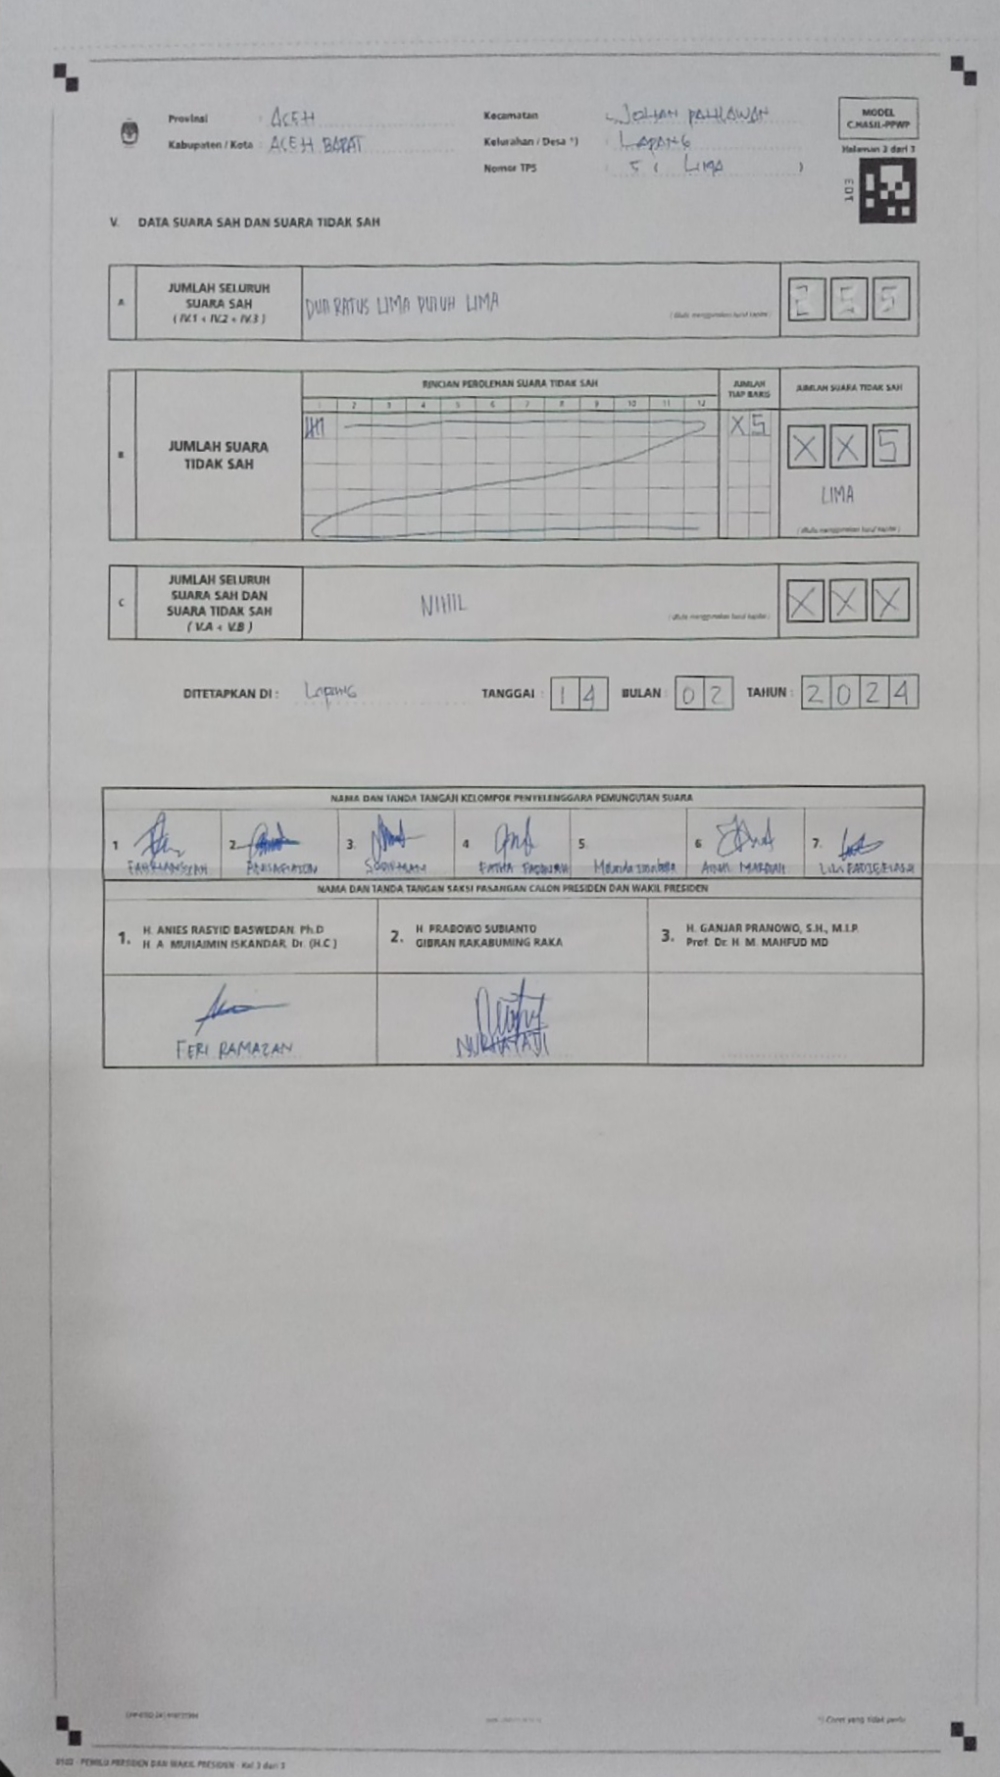 Provinsi : ACEH
Kabupaten / Kota : ACEH BARAT
Kecamatan : JOHAN PAHLAWAN
Kelurahan / Desa *) : LAPANG
Nomor TPS : 5 ( LIMA )
MODEL
C.HASIL-PPWP
Halaman 3 dari 3
103
V. DATA SUARA SAH DAN SUARA TIDAK SAH
A JUMLAH SELURUH SUARA SAH ( IV.1 + IV.2 + IV.3 ) DUA RATUS LIMA PULUH LIMA 2 5 5
(ditulis menggunakan huruf kapital)
RINCIAN PEROLEHAN SUARA TIDAK SAH
JUMLAH TIAP BARIS
JUMLAH SUARA TIDAK SAH
1 2 3 4 5 6 7 8 9 10 11 12
B JUMLAH SUARA TIDAK SAH X 5 X X 5
LIMA
(ditulis menggunakan huruf kapital)
C JUMLAH SELURUH SUARA SAH DAN SUARA TIDAK SAH ( V.A + V.B ) NIHIL X X X
(ditulis menggunakan huruf kapital)
DITETAPKAN DI : Lapang TANGGAL : 14 BULAN : 02 TAHUN : 2024
NAMA DAN TANDA TANGAN KELOMPOK PENYELENGGARA PEMUNGUTAN SUARA
1. 2. 3. 4. 5. 6. 7.
FAHRIANSYAH SUDIRMAN
NAMA DAN TANDA TANGAN SAKSI PASANGAN CALON PRESIDEN DAN WAKIL PRESIDEN
1. H. ANIES RASYID BASWEDAN, Ph.D
H. A. MUHAIMIN ISKANDAR, Dr. (H.C.)
2. H. PRABOWO SUBIANTO
GIBRAN RAKABUMING RAKA
3. H. GANJAR PRANOWO, S.H., M.I.P.
Prof. Dr. H. M. MAHFUD MD
FERI RAMAZAN
NURHAYATI
*) Coret yang tidak perlu
0102 - PEMILU PRESIDEN DAN WAKIL PRESIDEN - Hal 3 dari 3